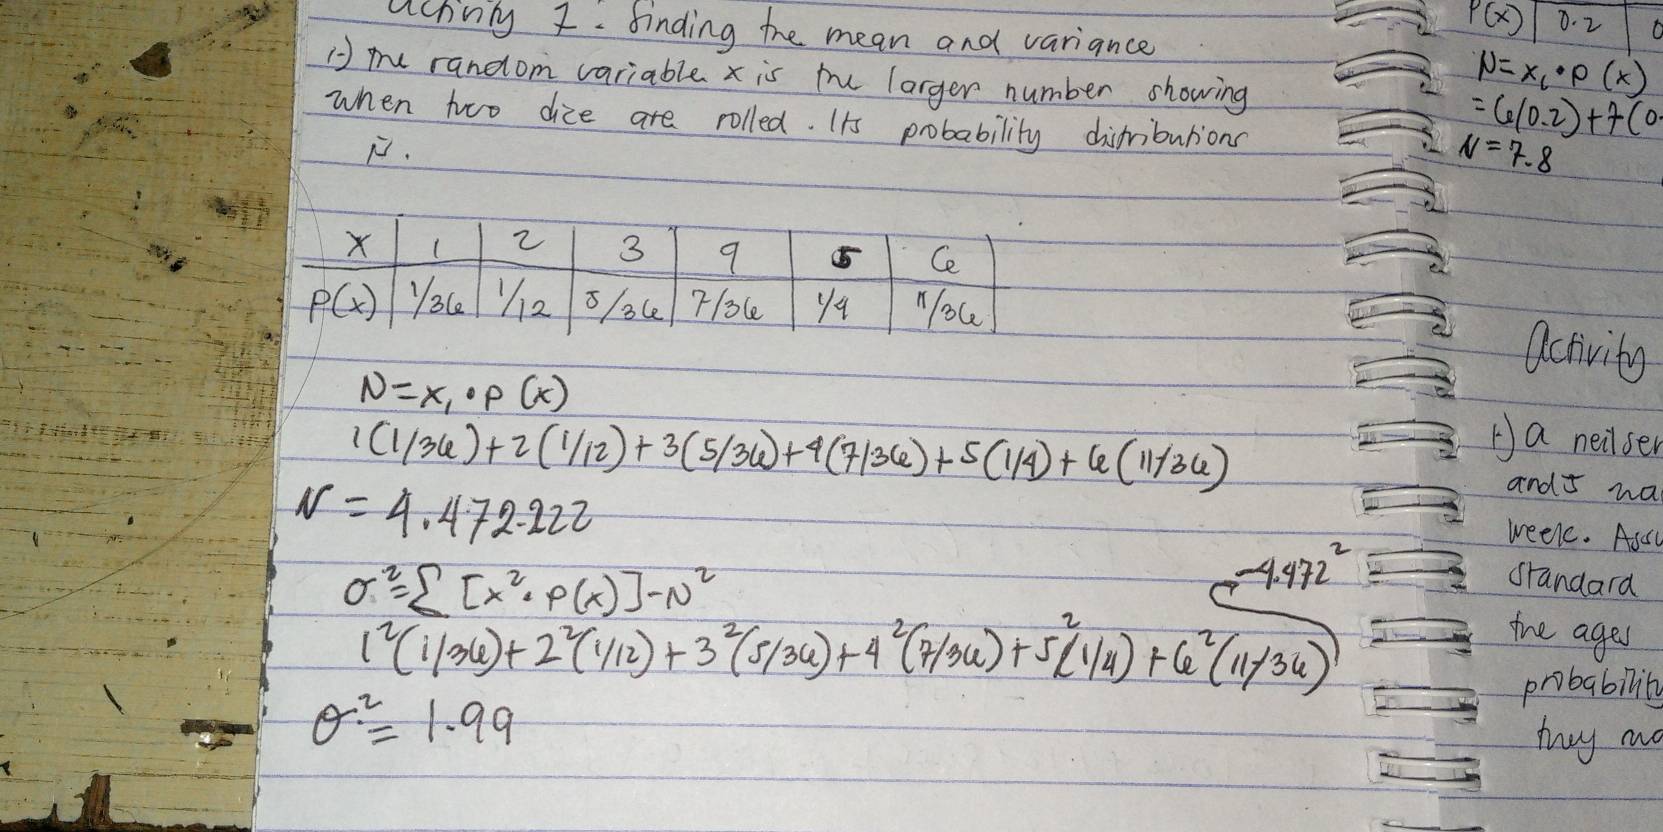 Activity 7: finding the mean and variance
1.) The random variable x is the larger number showing
when two dice are rolled. Its probability distributions
is.
X | 1 | 2 | 3 | 4 | 5 | 6
P(x) | 1/36 | 1/12 | 5/36 | 7/36 | 1/4 | 11/36
N=x₁•P(x)
1(1/36)+2(1/12)+3(5/36)+4(7/36)+5(1/4)+6(11/36)
N = 4.472222
σ²=Σ[x²•P(x)]-N²
-4.472²
1²(1/36)+2²(1/12)+3²(5/36)+4²(7/36)+5²(1/4)+6²(11/36)
σ²= 1.99
P(x) | 0.2 | 0
N=x₁•P(x)
=6(0.2)+7(0.
N=7.8
Activity
1.) a neilsen
and 5
week.
standard
the ages
probability
they